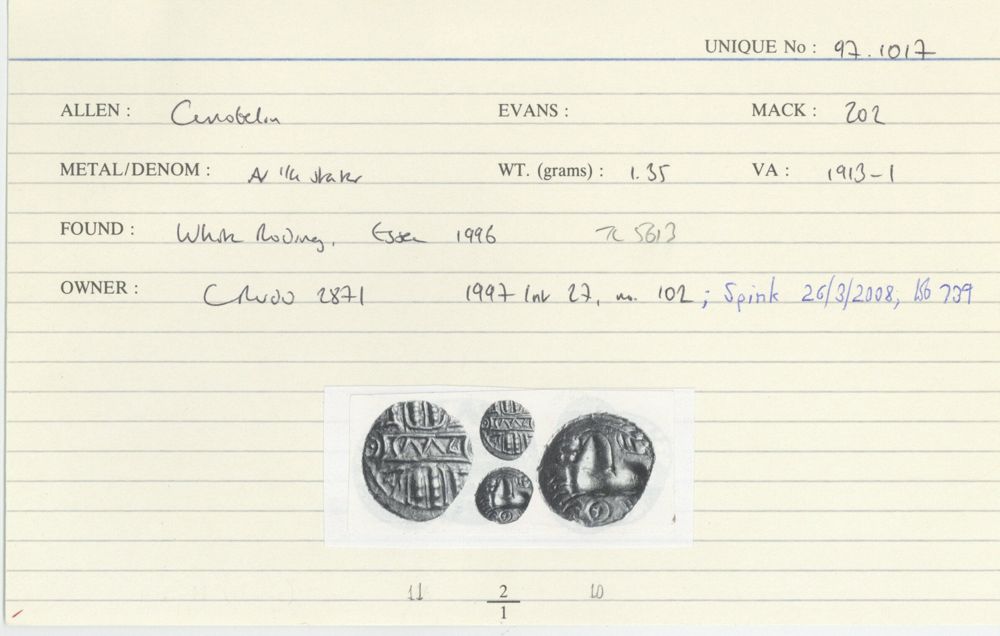 UNIQUE No : 97.1017
ALLEN : Cunobelin EVANS : MACK : 202
METAL/DENOM : AV 1/4 stater WT. (grams) : 1.35 VA : 1913-1
FOUND : White Roding, Essex 1996 TL 5613
OWNER : 2871 1997 27, no. 102 ; Spink 26/3/2008, lot 739
11 2 10
1